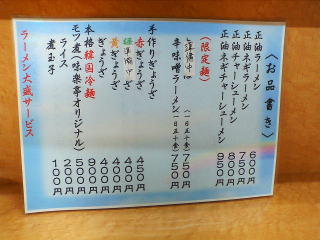 〈お品書き〉
正油ラーメン 600円
正油ネギラーメン 750円
正油チャーシューメン 800円
正油ネギチャーシューメン 950円
(限定麺)
準備中
辛味噌ラーメン(一日五十食) 750円
手作りぎょうざ
赤ぎょうざ 450円
準備中
黄ぎょうざ 400円
ぎょうざ 400円
本格韓国冷麺 900円
モツ煮(味楽亭オリジナル) 500円
ライス 200円
煮玉子 100円
ラーメン大盛サービス